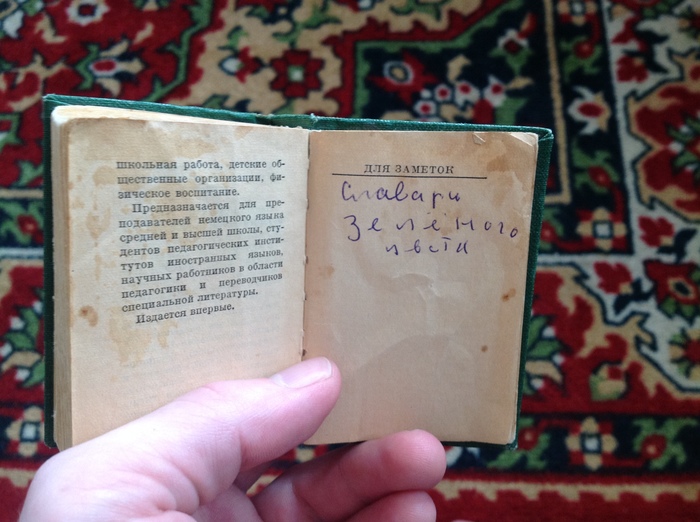 школьная работа, детские об-
щественные организации, фи-
зическое воспитание.
Предназначается для пре-
подавателей немецкого языка
средней и высшей школы, сту-
дентов педагогических инсти-
тутов иностранных языков,
научных работников в области
педагогики и переводчиков
специальной литературы.
Издается впервые.
ДЛЯ ЗАМЕТОК
Славари
Зеленого
цвета